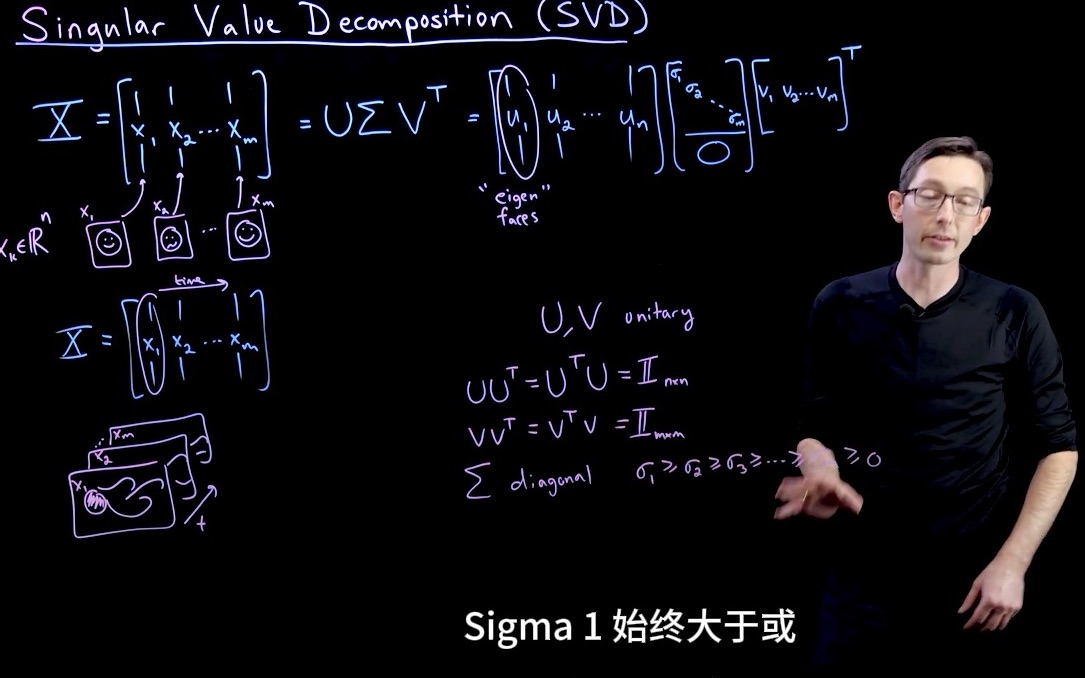 Singular Value Decomposition (SVD)
X = [x₁ x₂ ⋯ xₘ] = UΣVᵀ = [u₁ u₂ ⋯ uₙ] [σ₁ σ₂ ⋱ σₘ 0] [v₁ v₂ ⋯ vₘ]ᵀ
"eigen"
faces
xₖ∈ℝⁿ x₁ x₂ ⋯ xₘ
time
X = [x₁ x₂ ⋯ xₘ]
xₘ
x₂
x₁
t
U,V unitary
UUᵀ = UᵀU = 𝕀 n×n
VVᵀ = VᵀV = 𝕀 m×m
Σ diagonal σ₁ ≥ σ₂ ≥ σ₃ ≥ ⋯ ≥ ≥ 0
Sigma 1 始终大于或